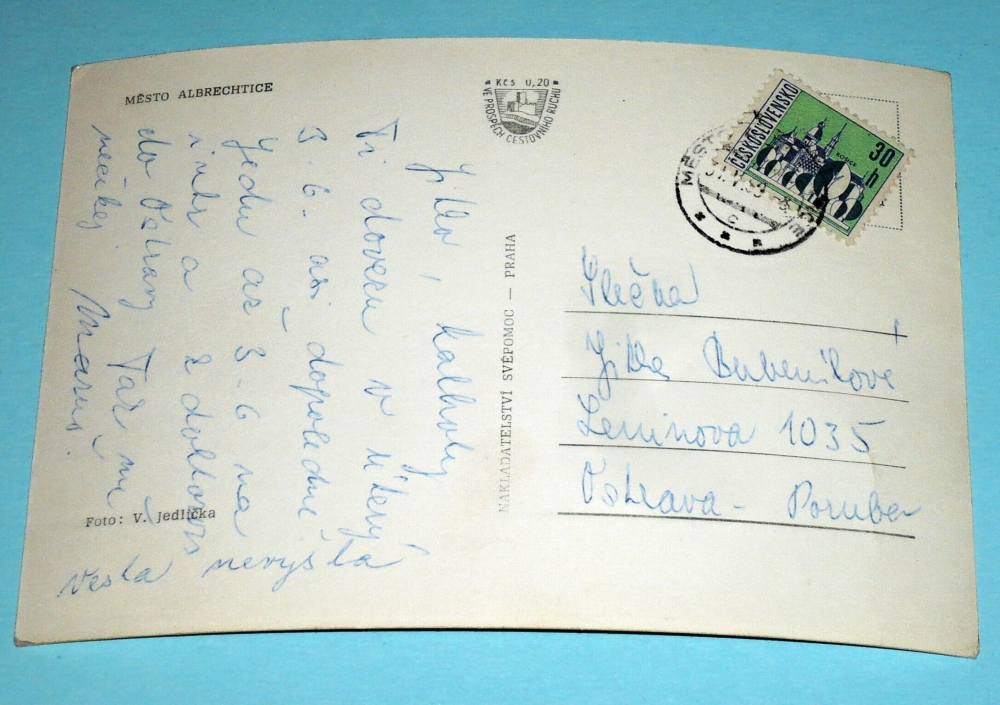 MĚSTO ALBRECHTICE
Kčs 0,20
VE PROSPĚCH CESTOVNÍHO RUCHU
ČESKOSLOVENSKO
30 h
KOŠICE
MĚSTO
c
NAKLADATELSTVÍ SVÉPOMOC — PRAHA
Jitko, kalhoty
Ti dovezu v úterý
3. 6. asi dopoledne
Jedu až 3-6 na
a
do Ostravy Tak mi
Slečna
Jitka Bubeníkova
Leninova 1035
Ostrava - Poruba
Foto: V. Jedlička
nevyšla
vesla